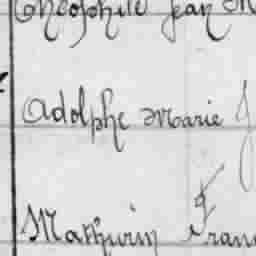 Théophile Jean M
Adolphe Marie J
Mathurin Fran